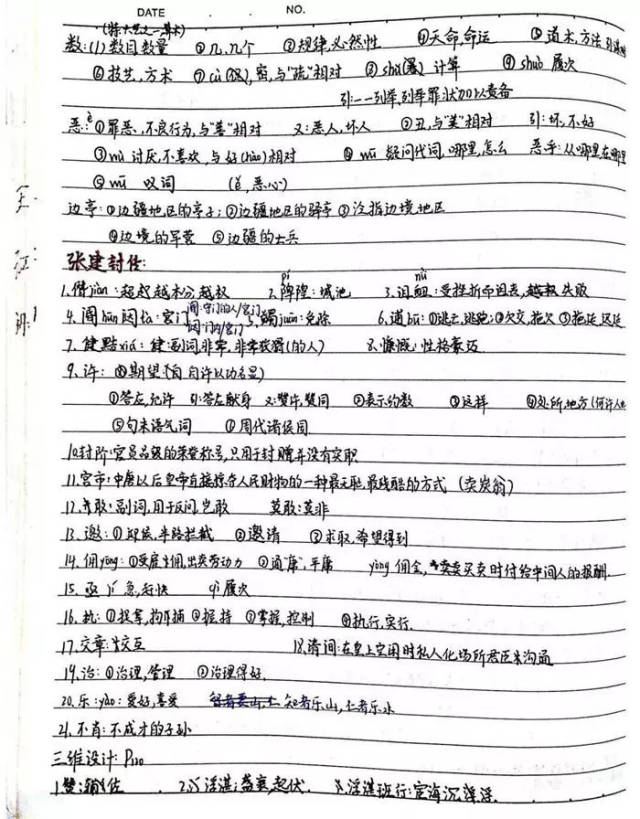 DATE NO.
(特六艺之一,算术)
数:(1)数目,数量 ②几,几个 ③规律,必然性 ④天命,命运 ⑤道术,方法
⑥技艺,方术 ⑦cù(促),密,与"疏"相对 ⑧shǔ(暑)计算 ⑨shuò 屡次
引:一一列举,列举罪状加以责备
恶:è①罪恶、不良行为,与"善"相对 又:恶人,坏人 ②丑,与"美"相对 引:坏,不好
③wù 讨厌,不喜欢,与好(hào)相对 ④wū 疑问代词,哪里,怎么 恶乎:从哪里,在哪里
⑤wū 叹词 (ě,恶心)
边亭:①边疆地区的亭子;②边疆地区的驿亭 ③泛指边境地区
④边境的军营 ⑤边疆的士兵
张建封传:
1.僭jiàn:超越本分,越权 2.隍:城池 3.沮衄nǜ:受挫折而沮丧,失败
4.阍hūn 5.蠲juān:免除 6.逋bū:①逃亡,逃跑;②欠交,拖欠 ③拖延,迟延
7.健黠xiá:健:副词,非常,非常狡猾(的人) 8.慷慨:性格豪迈
9.许:期望(自许以功名显)
①答应,允许 引:答应献身 又:赞许,赞同 ②表示约数 ③这样 ④处所,地方(何许人也
⑤句末语气词 ⑥周代诸侯国
10.封阶:官员品级的荣誉称号,只用于封赠并没有实职
11.宫市:中唐以后皇帝直接掠夺人民财物的一种最无耻,最残酷的方式 (卖炭翁)
12.敢:副词,用于反问,岂敢 莫敢:莫非
13.邀:①迎候,半路拦截 ②邀请 ③求取,希望得到
14.佣yōng:①受雇,出卖劳动力 ②通"庸",平庸 yòng 佣金,买卖时付给中间人的报酬.
15.亟 jí 急,赶快 qì 屡次
16.执:①捉拿,拘捕 ②握持 ③掌握,控制 ④执行,实行.
17.交章:交互 18.清间:在皇上空闲时私人化场所君臣来沟通
19.治:①治理,管理 ②治理得好.
20.乐:yào:爱好,喜爱 知者乐山,仁者乐水
21.不肖:不成才的子孙
三维设计:P120
1.赞:辅佐 2.浮湛:盛衰,起伏. 3.浮湛班行:宦海沉浮.